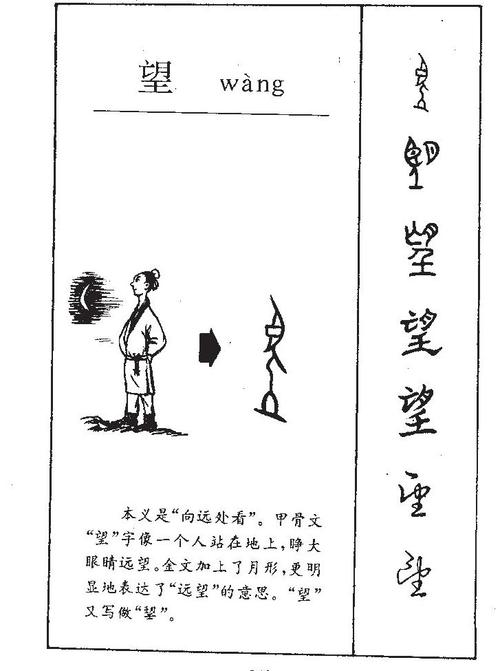 望 wàng
本义是“向远处看”。甲骨文
“望”字像一个人站在地上,睁大
眼睛远望。金文加上了月形,更明
显地表达了“远望”的意思。“望”
又写做“朢”。
望
望
望